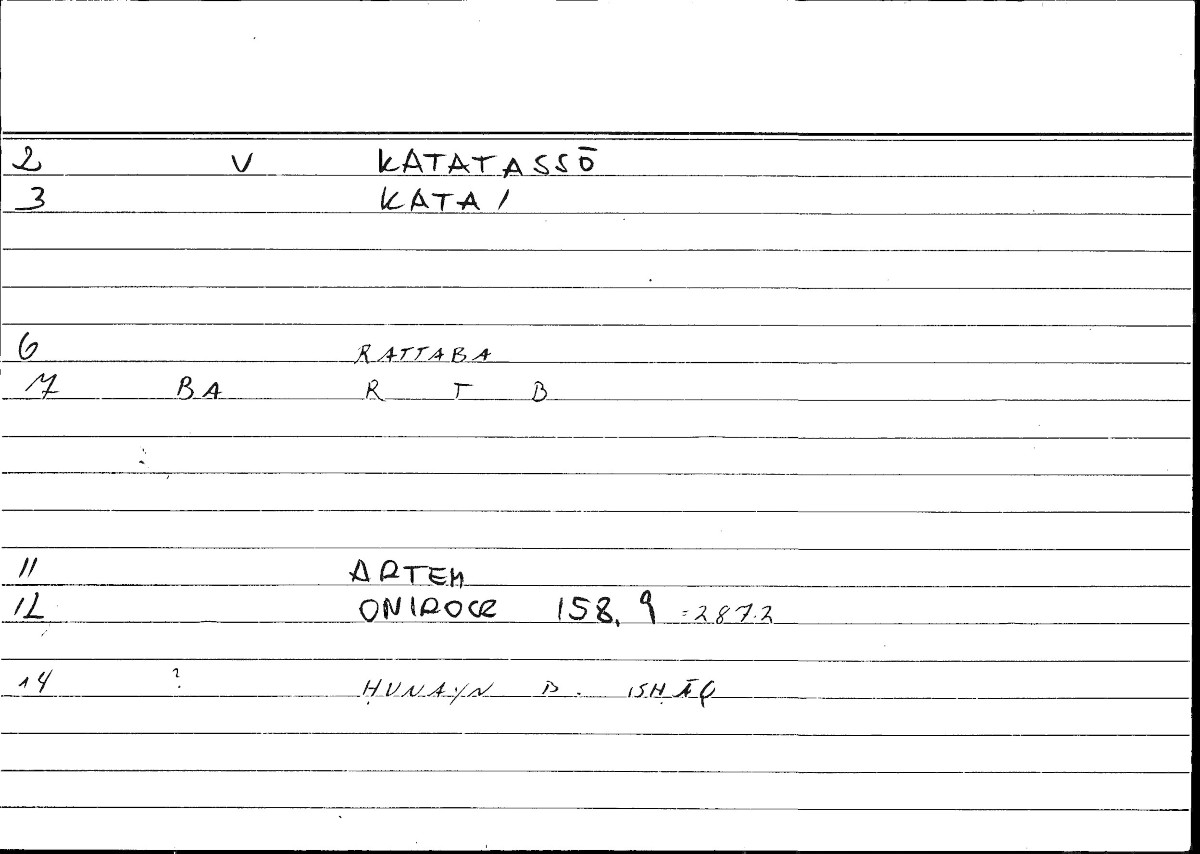 2 V KATATASSŌ
3 KATA /
6 RATTABA
7 BA R T B
11 ARTEM
12 ONIROCR 158, 9 =287.2
14 ? ḤUNAYN B. ISḤĀQ